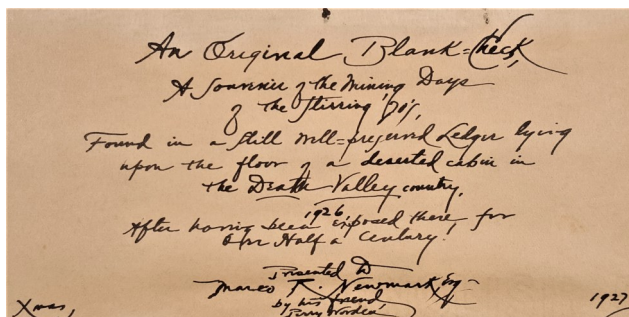 An Original Blank=Check,
A Souvenir of the Mining Days
of the Stirring 70's,
Found in a still well=preserved Ledger lying
upon the floor of a deserted cabin in
the Death Valley country,
1926,
After having been exposed there, for
over Half a Century!
Presented to
Marco R. Newmark, Esq
by his friend,
Perry Worden
Xmas, 1927